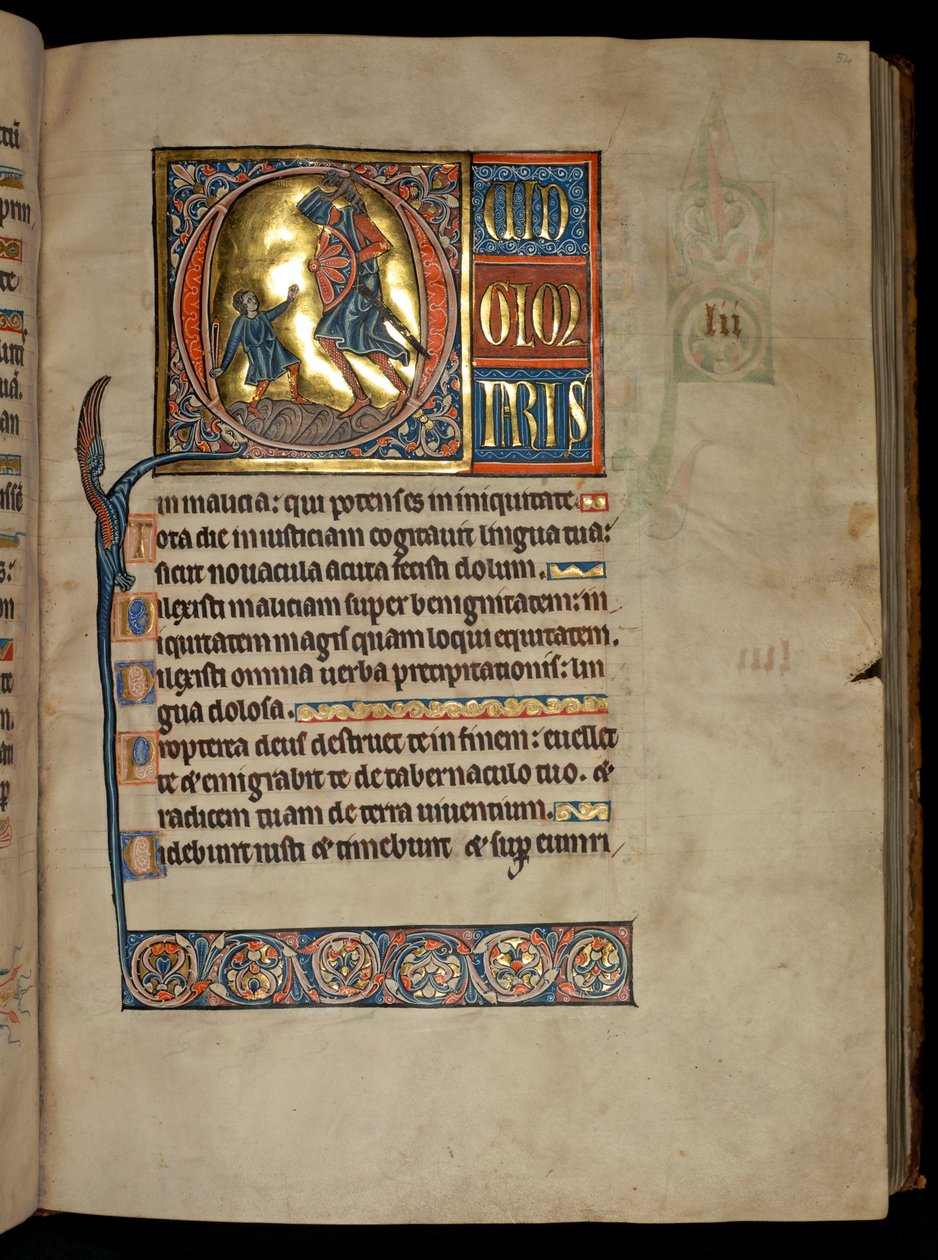 54
QUID
GLORI
ARIS
lii
in malicia: qui potens es in iniquitate
Tota die iniusticiam cogitauit lingua tua:
sicut nouacula acuta fecisti dolum.
Dilexisti maliciam super benignitatem: in
iquitatem magis quam loqui equitatem.
Dilexisti omnia uerba precipitationis: lin
gua dolosa.
Propterea deus destruet te in finem: euellet
te & emigrabit te de tabernaculo tuo. &
radicem tuam de terra uiuentium.
Uidebunt iusti & timebunt & sup eum ri